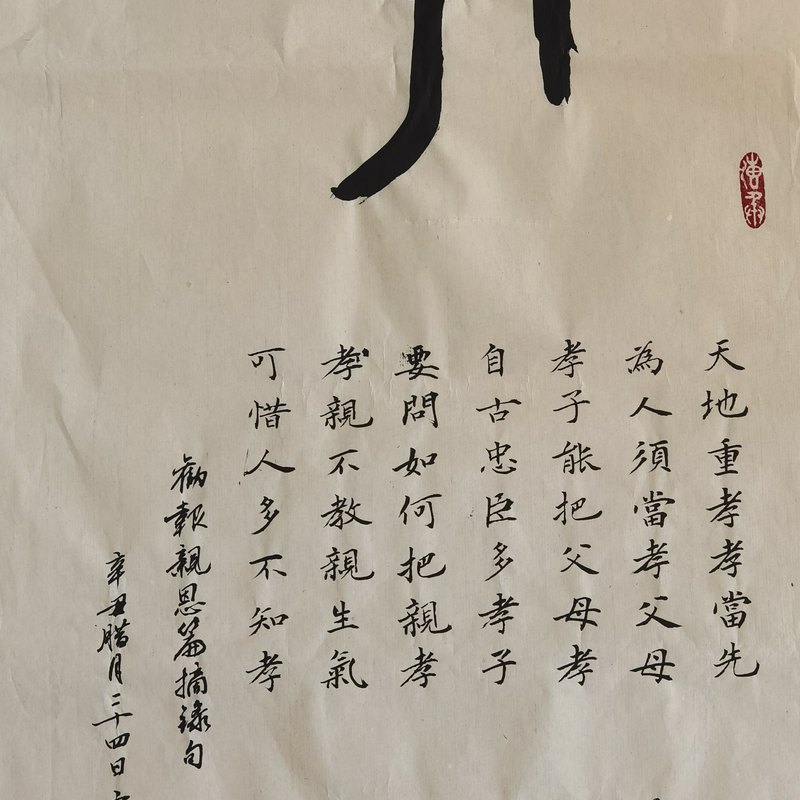 天地重孝孝當先
為人須當孝父母
孝子能把父母孝
自古忠臣多孝子
要問如何把親孝
孝親不教親生氣
可惜人多不知孝
勸報親恩篇摘錄句
辛丑腊月二十四日